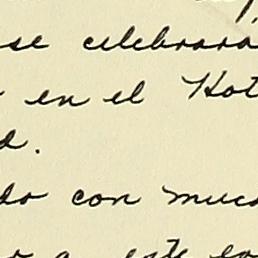 se celebrará
en el Hot
d.
do con muc
a este